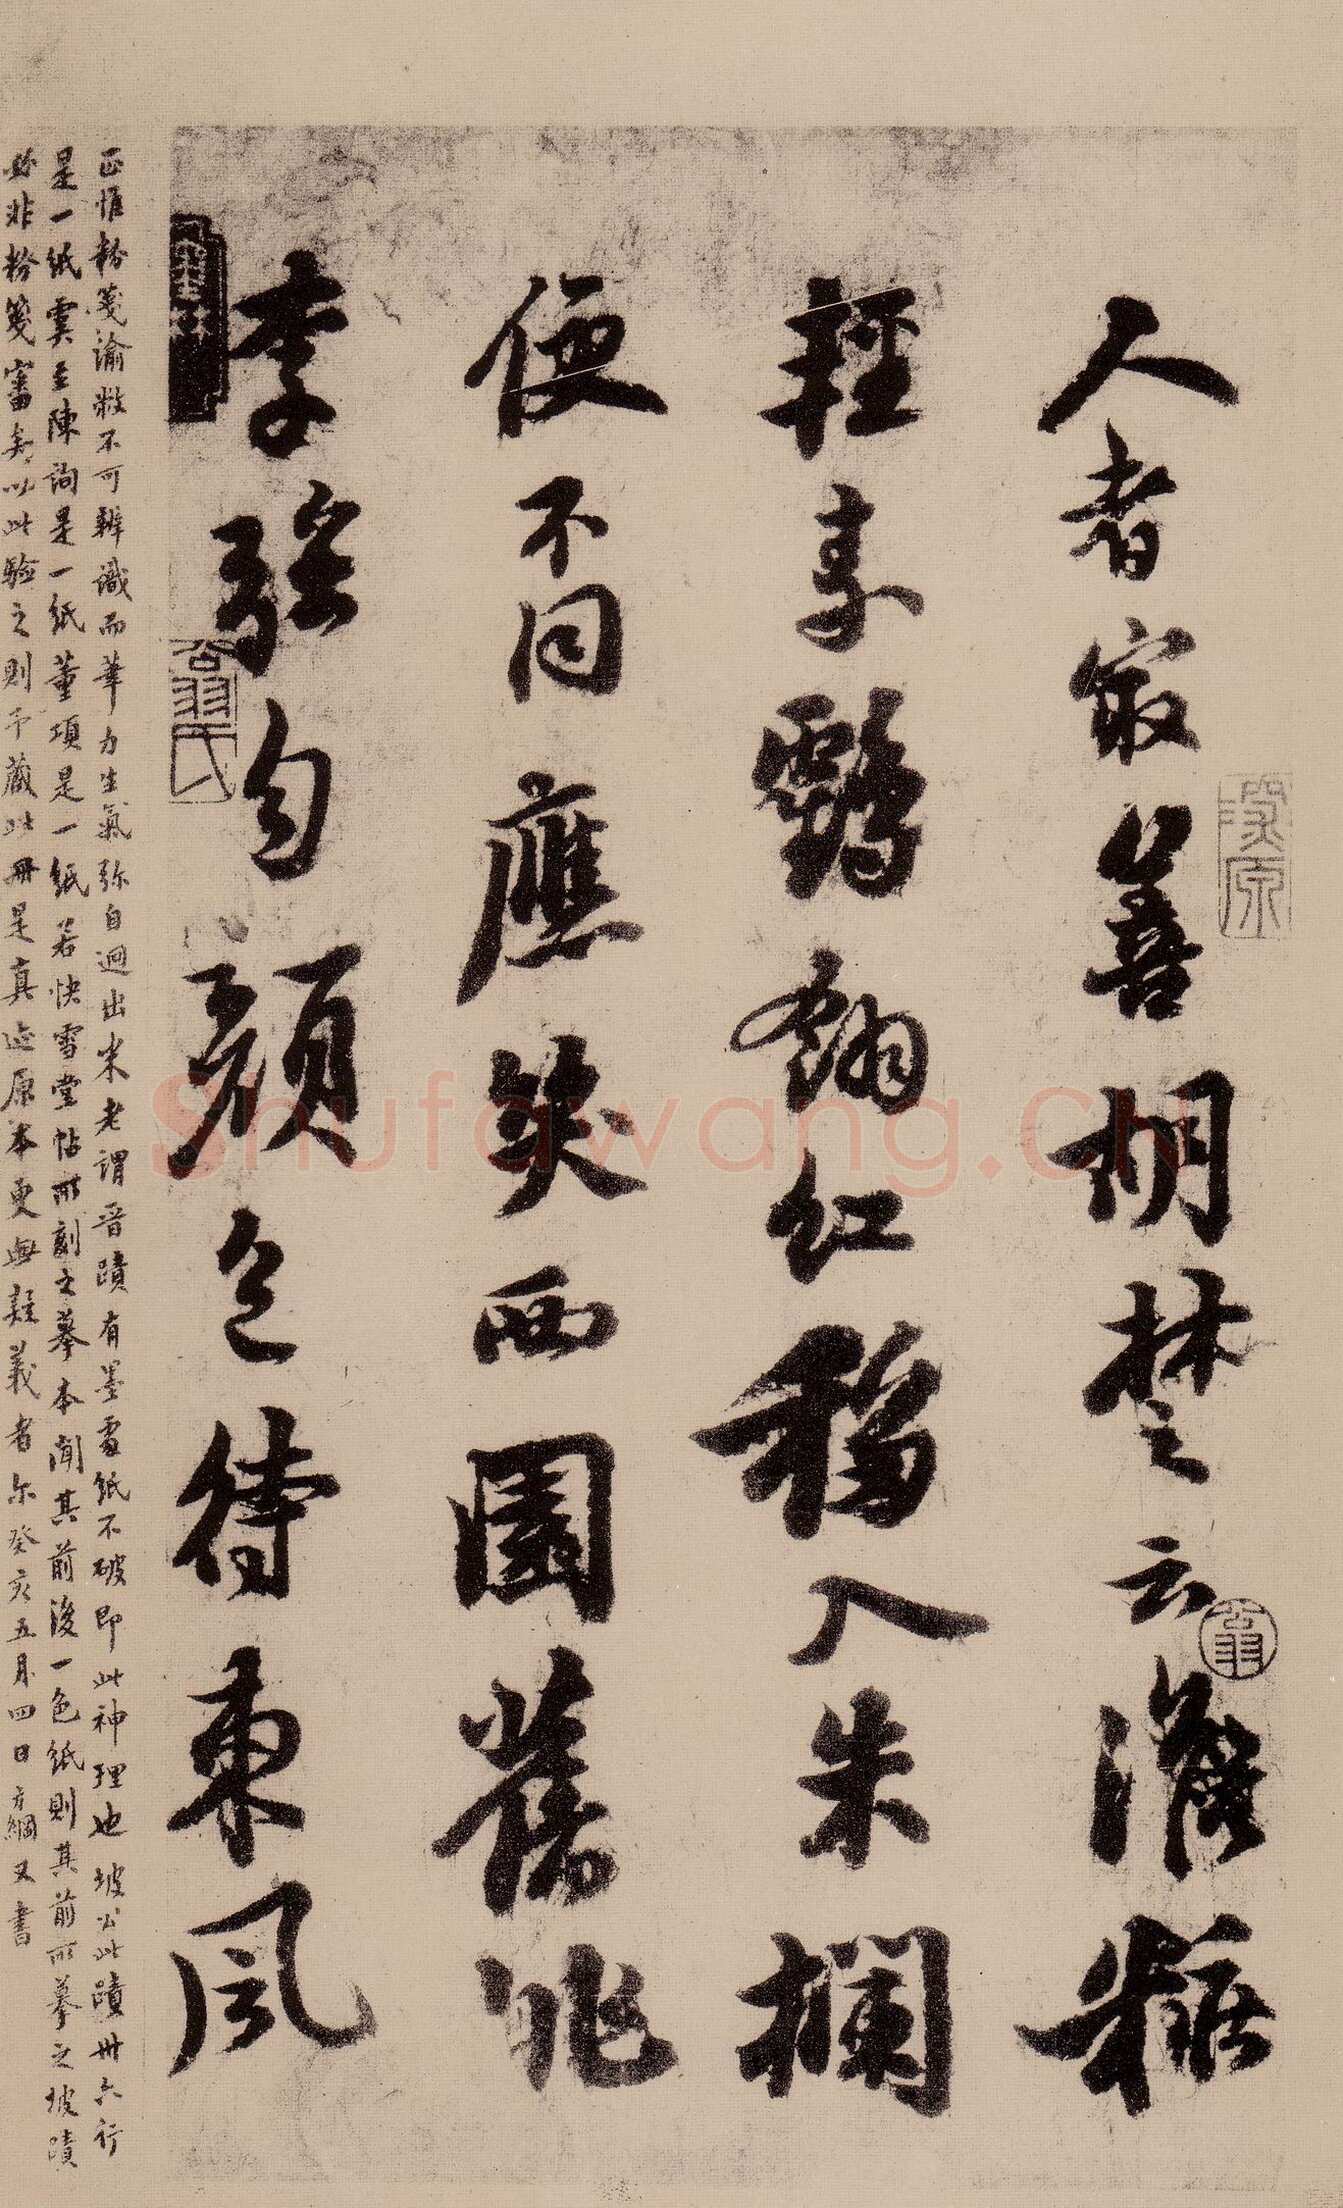 人者最善胡楚云淡粧
輕素鶴翎紅移入朱欄
便不同應笑西園舊桃
李強勻顏色待東風
正惟粉箋渝敝不可辨識而筆力生氣弥自迥出米老謂晋蹟有墨處紙不破即此神理也坡公此蹟卅六行
是一紙虞至陳詢是一紙董項是一紙若快雪堂帖所刻之摹本聞其前後一色紙則其前所摹之坡蹟
必非粉箋審矣以此驗之則予藏此冊是真迹原本更無疑義者尔癸亥五月四日方綱又書
翁
Shufawang.cn